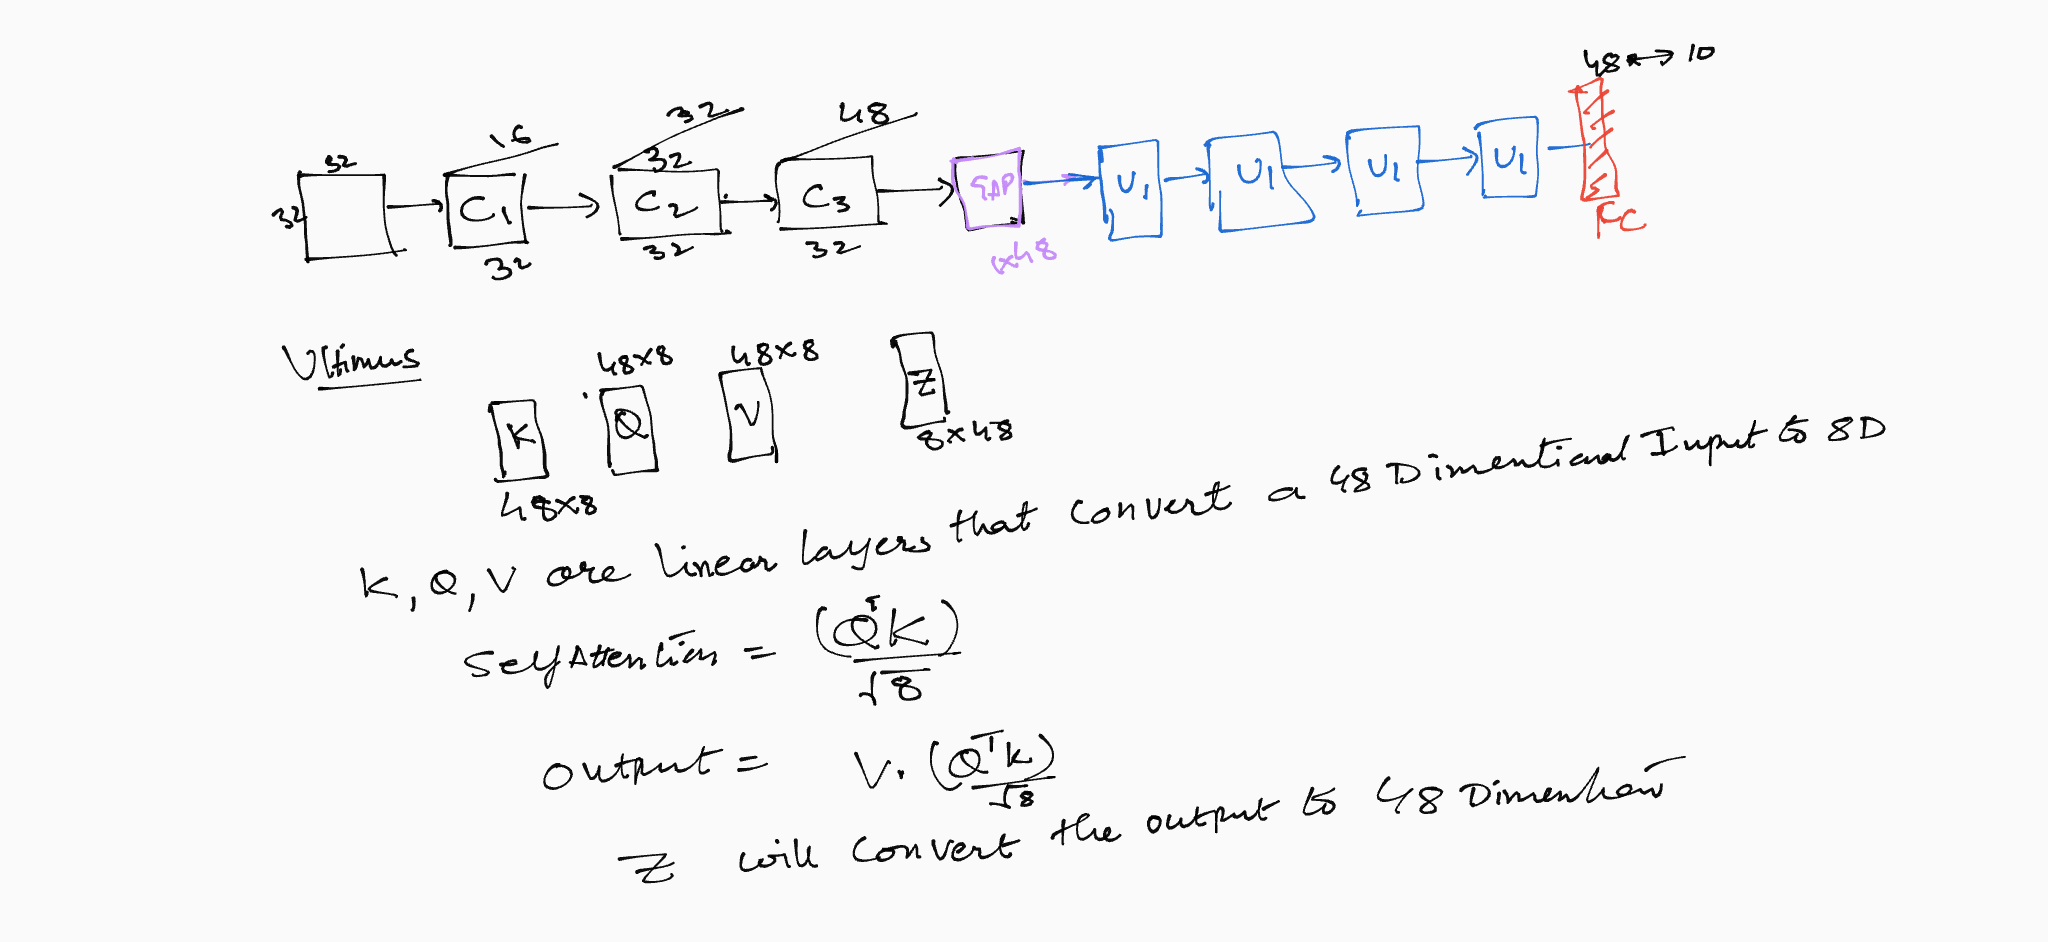 48 → 10
32 16 32 48
32 C1 32 C2 C3 GAP U1 U1 U1 U1
32 32 32 1x48 FC
Ultimus
48x8 48x8
K Q V Z
48x8 8x48
K, Q, V are linear layers that convert a 48 Dimentional Input to 8D
Self Attention = (QᵀK) / √8
output = V. (QᵀK) / √8
Z will convert the output to 48